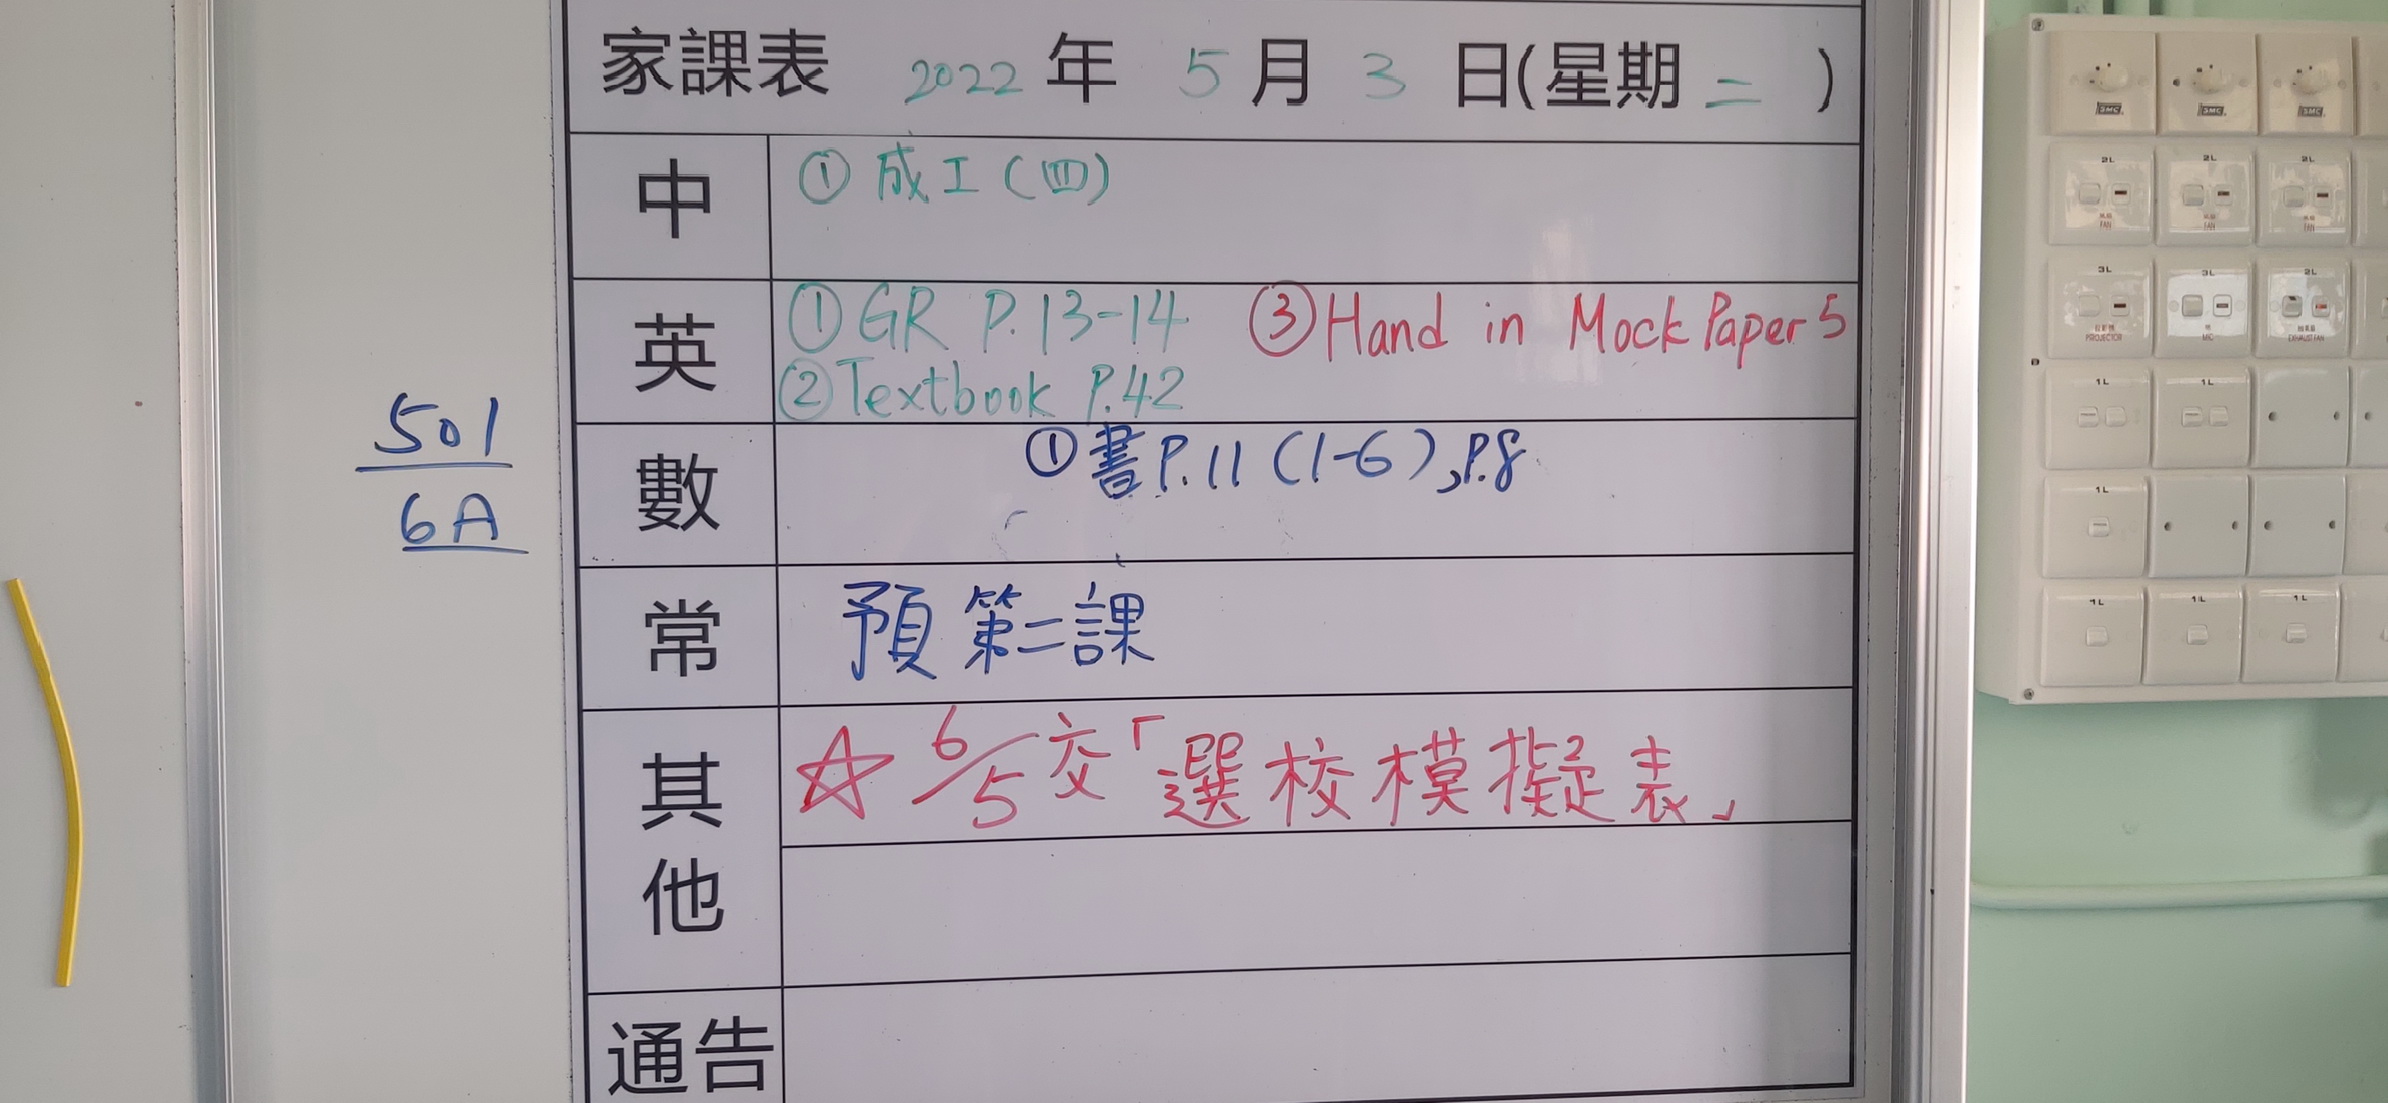 家課表 2022 年 5 月 3 日(星期 二 )
中 ①成工(四)
英 ①GR P.13-14 ③Hand in Mock Paper 5
②Textbook P.42
501
6A
數 ①書P.11 (1-6),P.8
常 預第二課
其他 ☆ 6/5交「選校模擬表」
通告
GMC GMC GMC
2L 2L 2L
FAN FAN FAN
3L 3L 2L
PROJECTOR MIC EXHAUST FAN
1L 1L
1L
1L 1L 1L